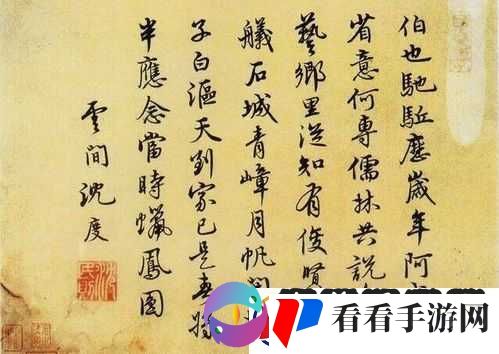 伯也馳駈應歲年阿
省意何專儒林共說
藝鄉里從知有俊賢
艤石城青嶂月帆
子白漚天到家已是春將
半應念當時蠟鳳圖
雲間沈度
沈民則
看看手游网